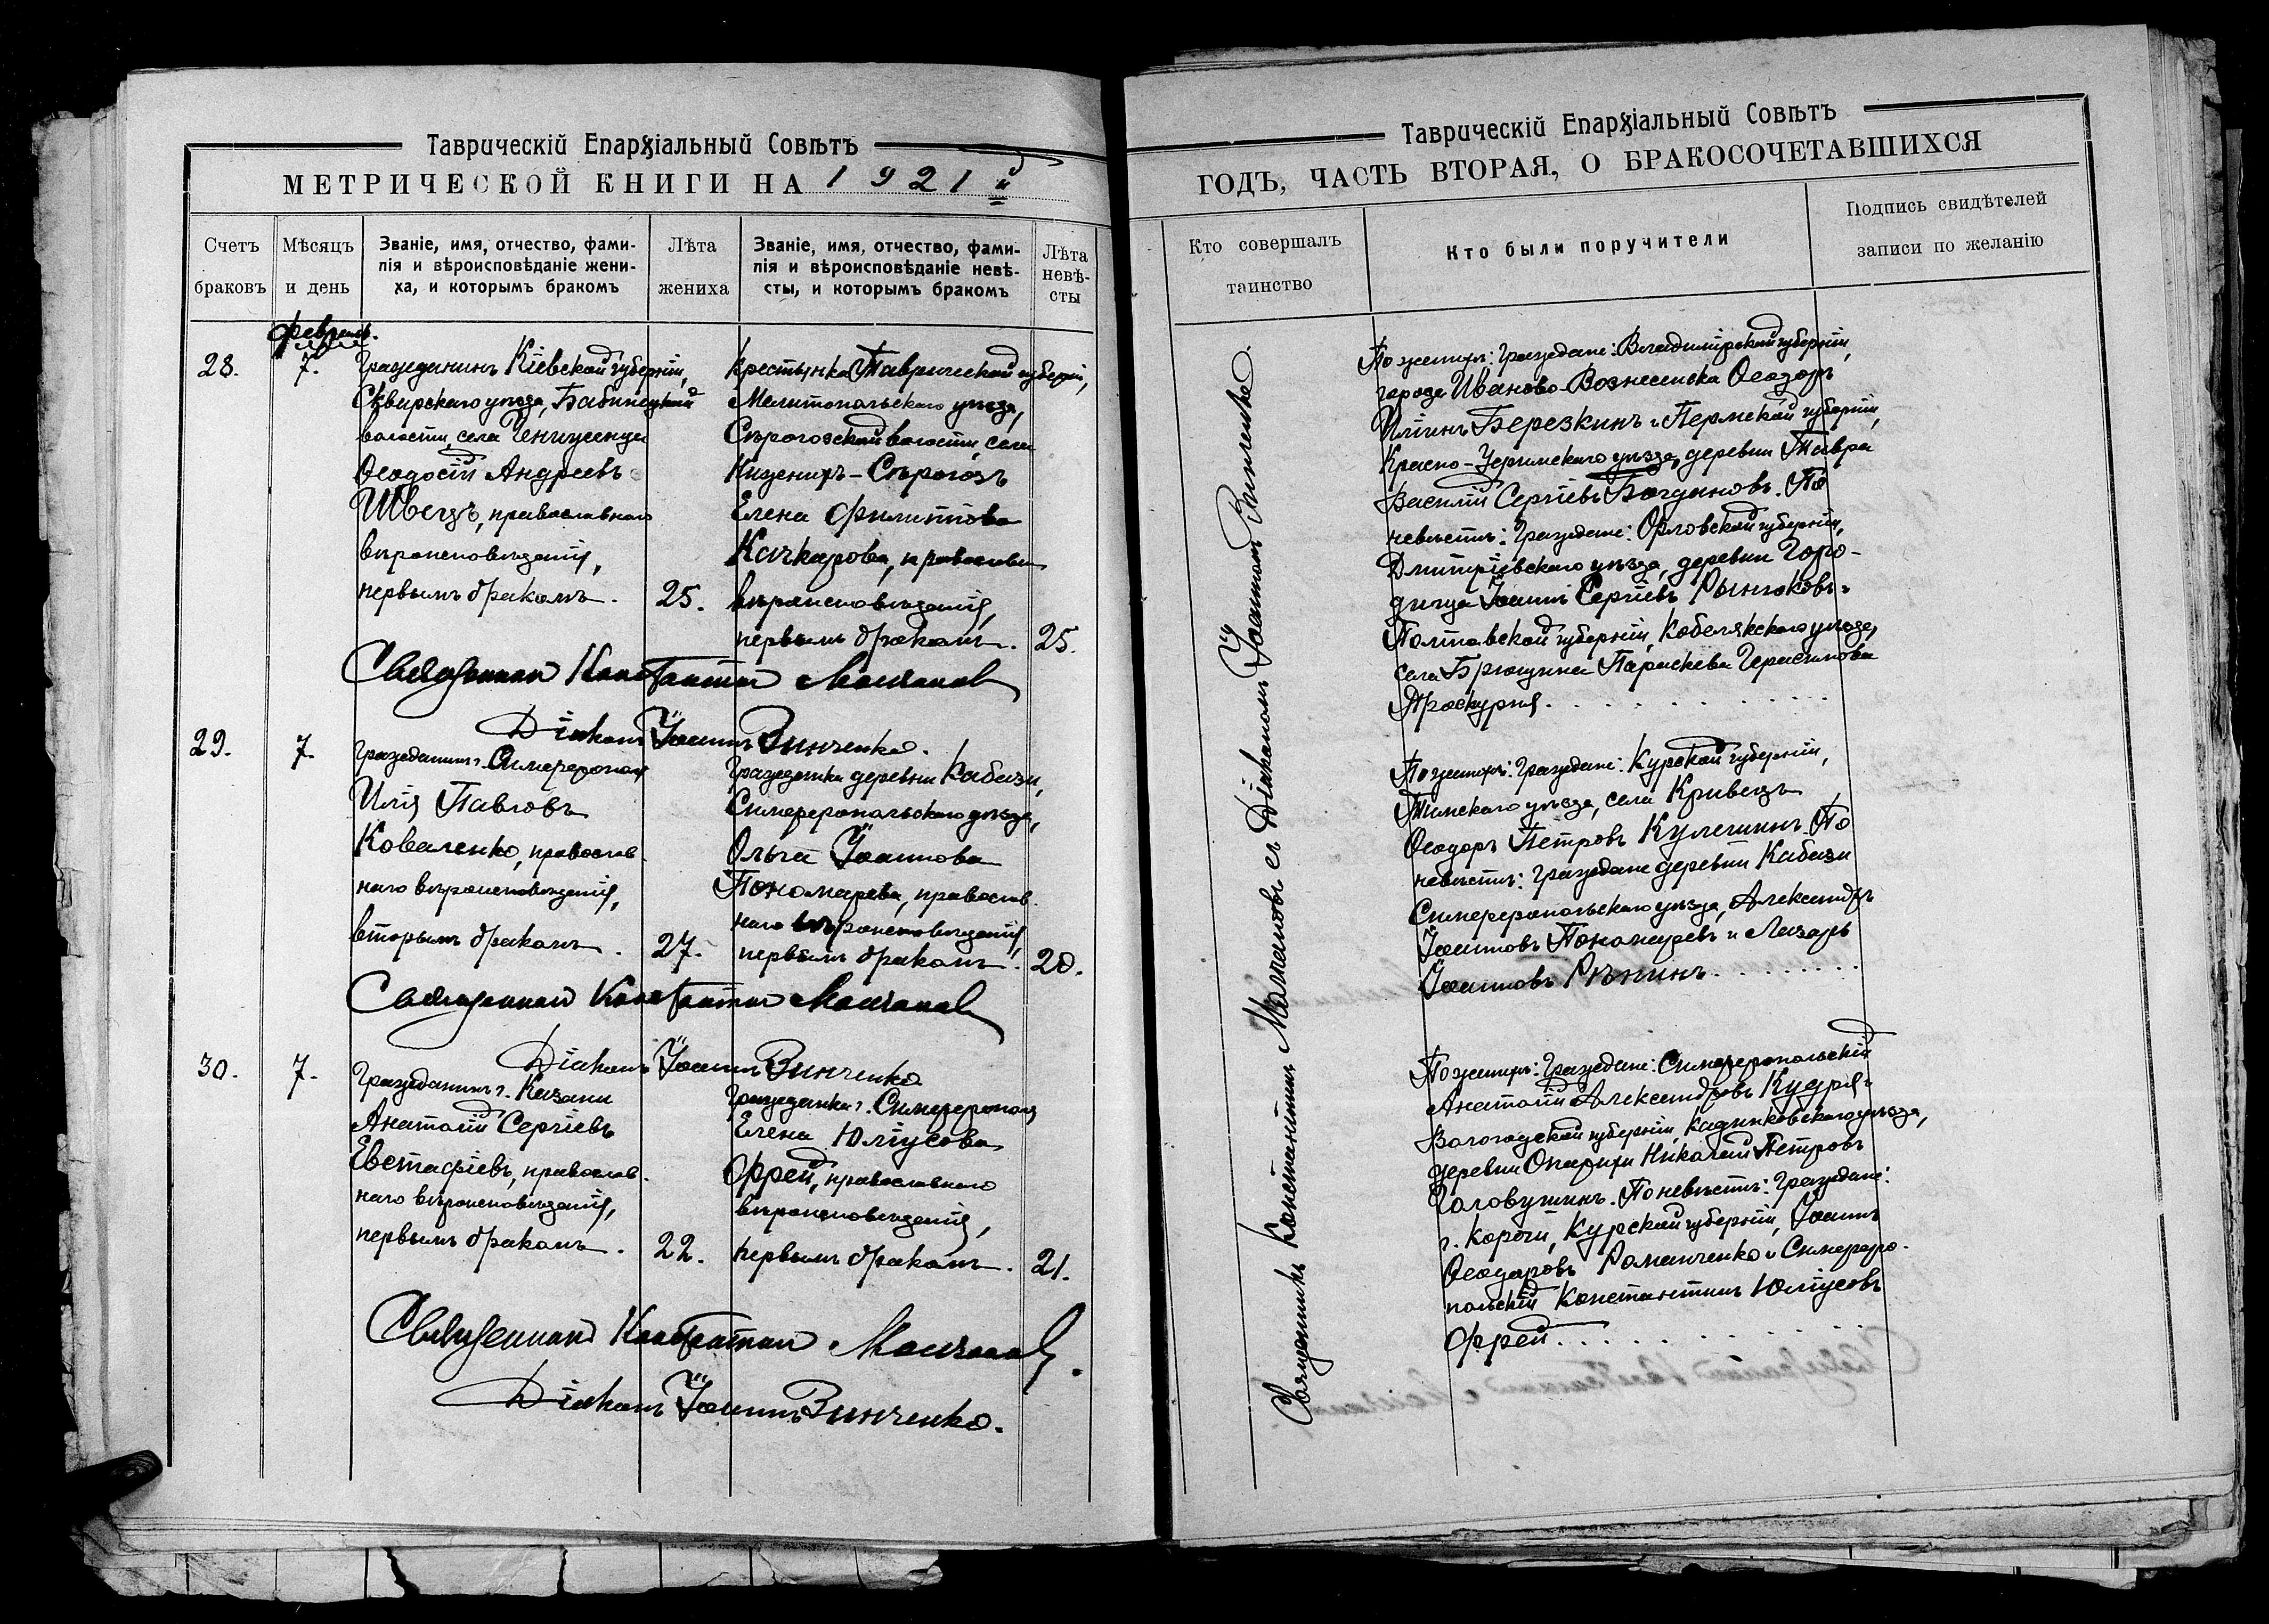 Таврическій Епархіальный Совѣтъ
МЕТРИЧЕСКОЙ КНИГИ НА 1921й
Счетъ браковъ
Мѣсяцъ и день
Званіе, имя, отчество, фами-
лія и вѣроисповѣданіе жени-
ха, и которымъ бракомъ
Лѣта жениха
Званіе, имя, отчество, фами-
лія и вѣроисповѣданіе невѣ-
сты, и которымъ бракомъ
Лѣта
невѣ-
сты
февраль.
28.
7.
Гражданинъ Кіевской губерніи,
Сквирскаго уѣзда,
волости, села
Ѳеодосій Андреевъ
Швецъ, православнаго
вѣроисповѣданія,
первымъ бракомъ.
25.
Крестьянка Таврической губерніи,
Мелитопольскаго уѣзда,
Сѣрогозской волости, села
Нижнихъ-Сѣрогозъ
Елена Филиппова
Качкарова, православн.
вѣроисповѣданія,
первымъ бракомъ.
25.
Священник Константин Молчанов
Діаконъ Іоаннъ Винченко.
29.
7.
Гражданинъ г. Симферополя
Илія Павловъ
Коваленко, православ-
наго вѣроисповѣданія,
вторымъ бракомъ.
27.
Гражданка деревни Кабази,
Симферопольскаго уѣзда,
Ольга Іоаннова
Пономарева, православ-
наго вѣроисповѣданія,
первымъ бракомъ.
20.
Священник Константин Молчанов
Діаконъ Іоаннъ Винченко
30.
7.
Гражданинъ г. Казани
Анатолій Сергіевъ
Евстафіевъ, православ-
наго вѣроисповѣданія,
первымъ бракомъ.
22.
Гражданка г. Симферополя
Елена Юліусова
Фрей, православнаго
вѣроисповѣданія,
первымъ бракомъ.
21.
Священник Константин Молчанов.
Діаконъ Іоаннъ Винченко.
Таврическій Епархіальный Совѣтъ
ГОДЪ, ЧАСТЬ ВТОРАЯ, О БРАКОСОЧЕТАВШИХСЯ
Кто совершалъ
таинство
Кто были поручители
Подпись свидѣтелей
записи по желанію
Священникъ Константинъ Молчановъ съ Діакономъ Іоанномъ Винченко.
По женихѣ: Граждане: Владимірской губерніи,
города Иваново-Вознесенска Ѳеодоръ
Иліинъ Березкинъ и Пермской губерніи,
Красно-Уфимскаго уѣзда, деревни Тавра
Василій Сергіевъ Богдановъ. По
невѣстѣ: Граждане: Орловской губерніи,
Дмитріевскаго уѣзда, деревни Горо-
Іоаннъ Сергіевъ и
Полтавской губерніи, Кобелякскаго уѣзда,
села Параскева Герасимова
Проскурня.
По женихѣ: Граждане: Курской губерніи,
Тимскаго уѣзда, села Кривецъ
Ѳеодоръ Петровъ Кулешинъ. По
невѣстѣ: Граждане деревни Кабази
Симферопольскаго уѣзда, Александръ
Іоанновъ Пономаревъ и Лазарь
Іоанновъ Рѣпинъ.
По женихѣ: Граждане: Симферопольскій
Анатолій Александровъ Кудря и
Вологодской губерніи, Кадниковскаго уѣзда,
деревни Николай Петровъ
Головушинъ. По невѣстѣ: Граждане:
г. Корочи, Курской губерніи, Іоаннъ
Ѳеодоровъ Романченко и Симферо-
польскій Константинъ Юліусовъ
Фрей.